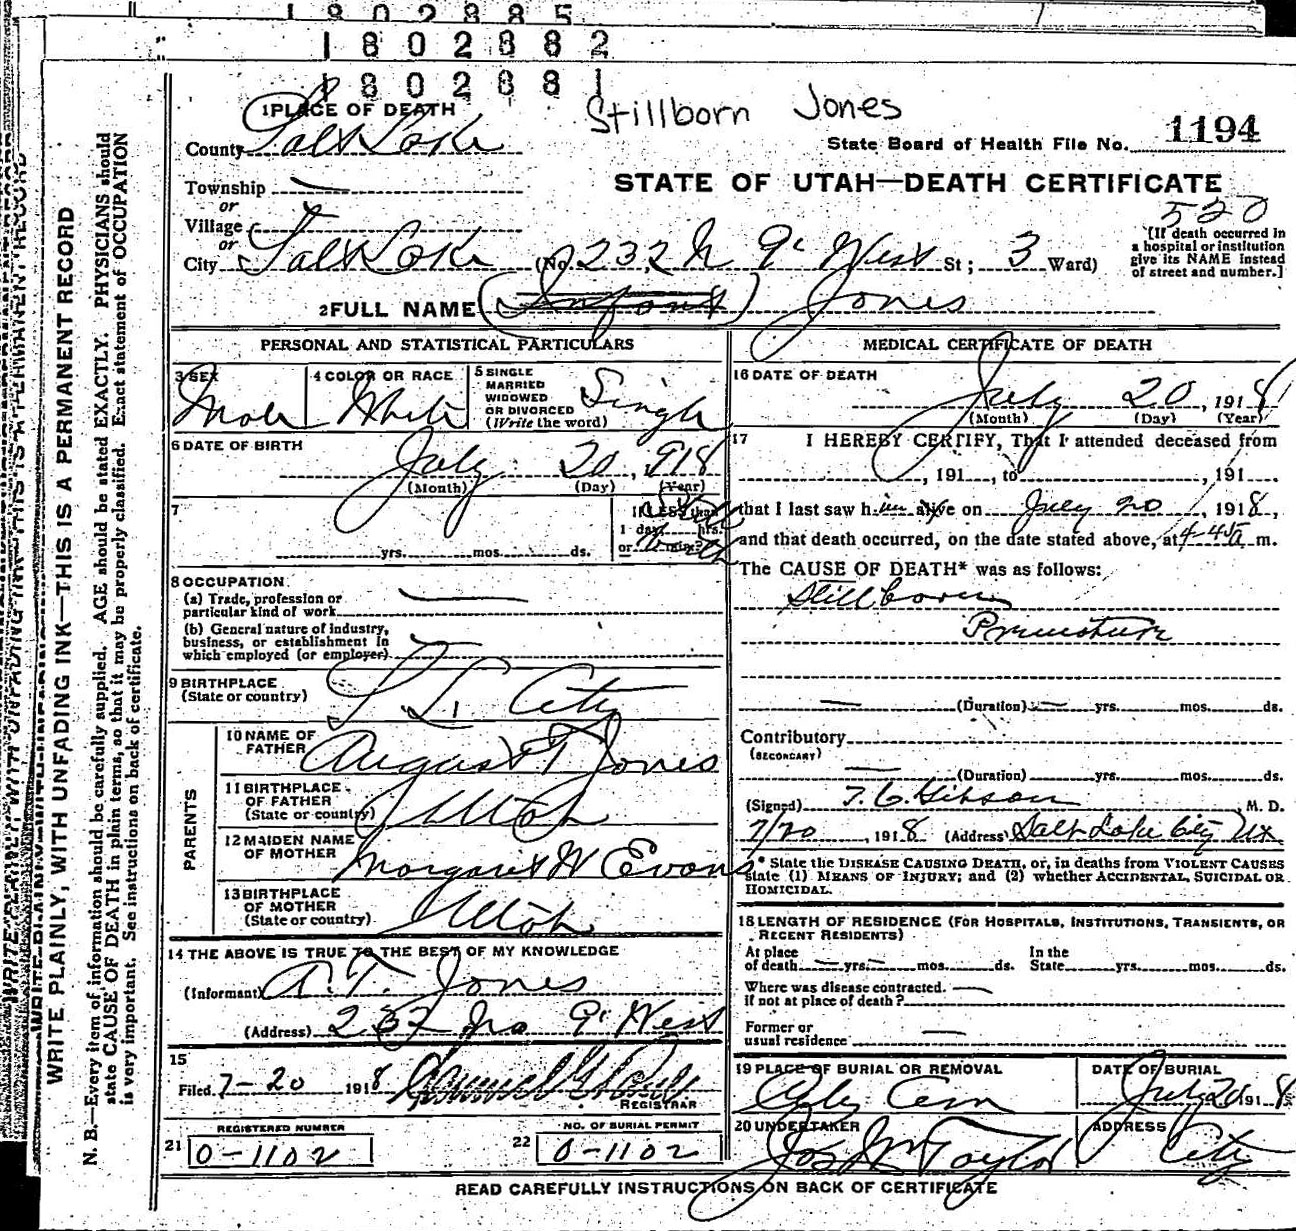 1802885
1802882
1802881
Stillborn Jones
1 PLACE OF DEATH
County Salt Lake
State Board of Health File No. 1194
Township —
or
Village
or
City Salt Lake (No. 232 N 9' West St; 3 Ward)
STATE OF UTAH—DEATH CERTIFICATE
520
[If death occurred in
a hospital or institution
give its NAME instead
of street and number.]
2 FULL NAME (Infant) Jones
PERSONAL AND STATISTICAL PARTICULARS
3 SEX
Male
4 COLOR OR RACE
White
5 SINGLE
MARRIED
WIDOWED
OR DIVORCED
(Write the word)
Single
6 DATE OF BIRTH
July 20, 1918
(Month) (Day) (Year)
7
yrs. mos. ds.
If LESS than
1 day hrs.
or min?
8 OCCUPATION
(a) Trade, profession or
particular kind of work —
(b) General nature of industry,
business, or establishment in
which employed (or employer)
9 BIRTHPLACE
(State or country)
S L City
PARENTS
10 NAME OF
FATHER
August T Jones
11 BIRTHPLACE
OF FATHER
(State or country)
Utah
12 MAIDEN NAME
OF MOTHER
Margaret W Evans
13 BIRTHPLACE
OF MOTHER
(State or country)
Utah
14 THE ABOVE IS TRUE TO THE BEST OF MY KNOWLEDGE
(Informant) A. T. Jones
(Address) 232 No 9' West
15
Filed 7-20 1918
REGISTRAR
REGISTERED NUMBER
21 0-1102
NO. OF BURIAL PERMIT
22 0-1102
MEDICAL CERTIFICATE OF DEATH
16 DATE OF DEATH
July 20, 1918
(Month) (Day) (Year)
17 I HEREBY CERTIFY, That I attended deceased from
, 191 , to , 191
that I last saw him alive on July 20, 1918,
and that death occurred, on the date stated above, at 4-45 a m.
The CAUSE OF DEATH* was as follows:
Stillborn
Premature
— (Duration) — yrs. mos. ds.
Contributory
(SECONDARY)
— (Duration) yrs. mos. ds.
(Signed) T. C. Gibson, M. D.
7/20, 1918 (Address) Salt Lake City Ut
* State the DISEASE CAUSING DEATH, or, in deaths from VIOLENT CAUSES
state (1) MEANS OF INJURY; and (2) whether ACCIDENTAL, SUICIDAL OR
HOMICIDAL.
18 LENGTH OF RESIDENCE (FOR HOSPITALS, INSTITUTIONS, TRANSIENTS, OR
RECENT RESIDENTS)
At place
of death — yrs. — mos. ds.
In the
State yrs. mos. ds.
Where was disease contracted. —
if not at place of death?
Former or
usual residence —
19 PLACE OF BURIAL OR REMOVAL
City Cem
DATE OF BURIAL
July 20 1918
20 UNDERTAKER
Jos Wm Taylor
ADDRESS
City
READ CAREFULLY INSTRUCTIONS ON BACK OF CERTIFICATE
WRITE PLAINLY, WITH UNFADING INK—THIS IS A PERMANENT RECORD
N. B.—Every item of information should be carefully supplied. AGE should be stated EXACTLY. PHYSICIANS should
state CAUSE OF DEATH in plain terms, so that it may be properly classified. Exact statement of OCCUPATION
is very important. See instructions on back of certificate.